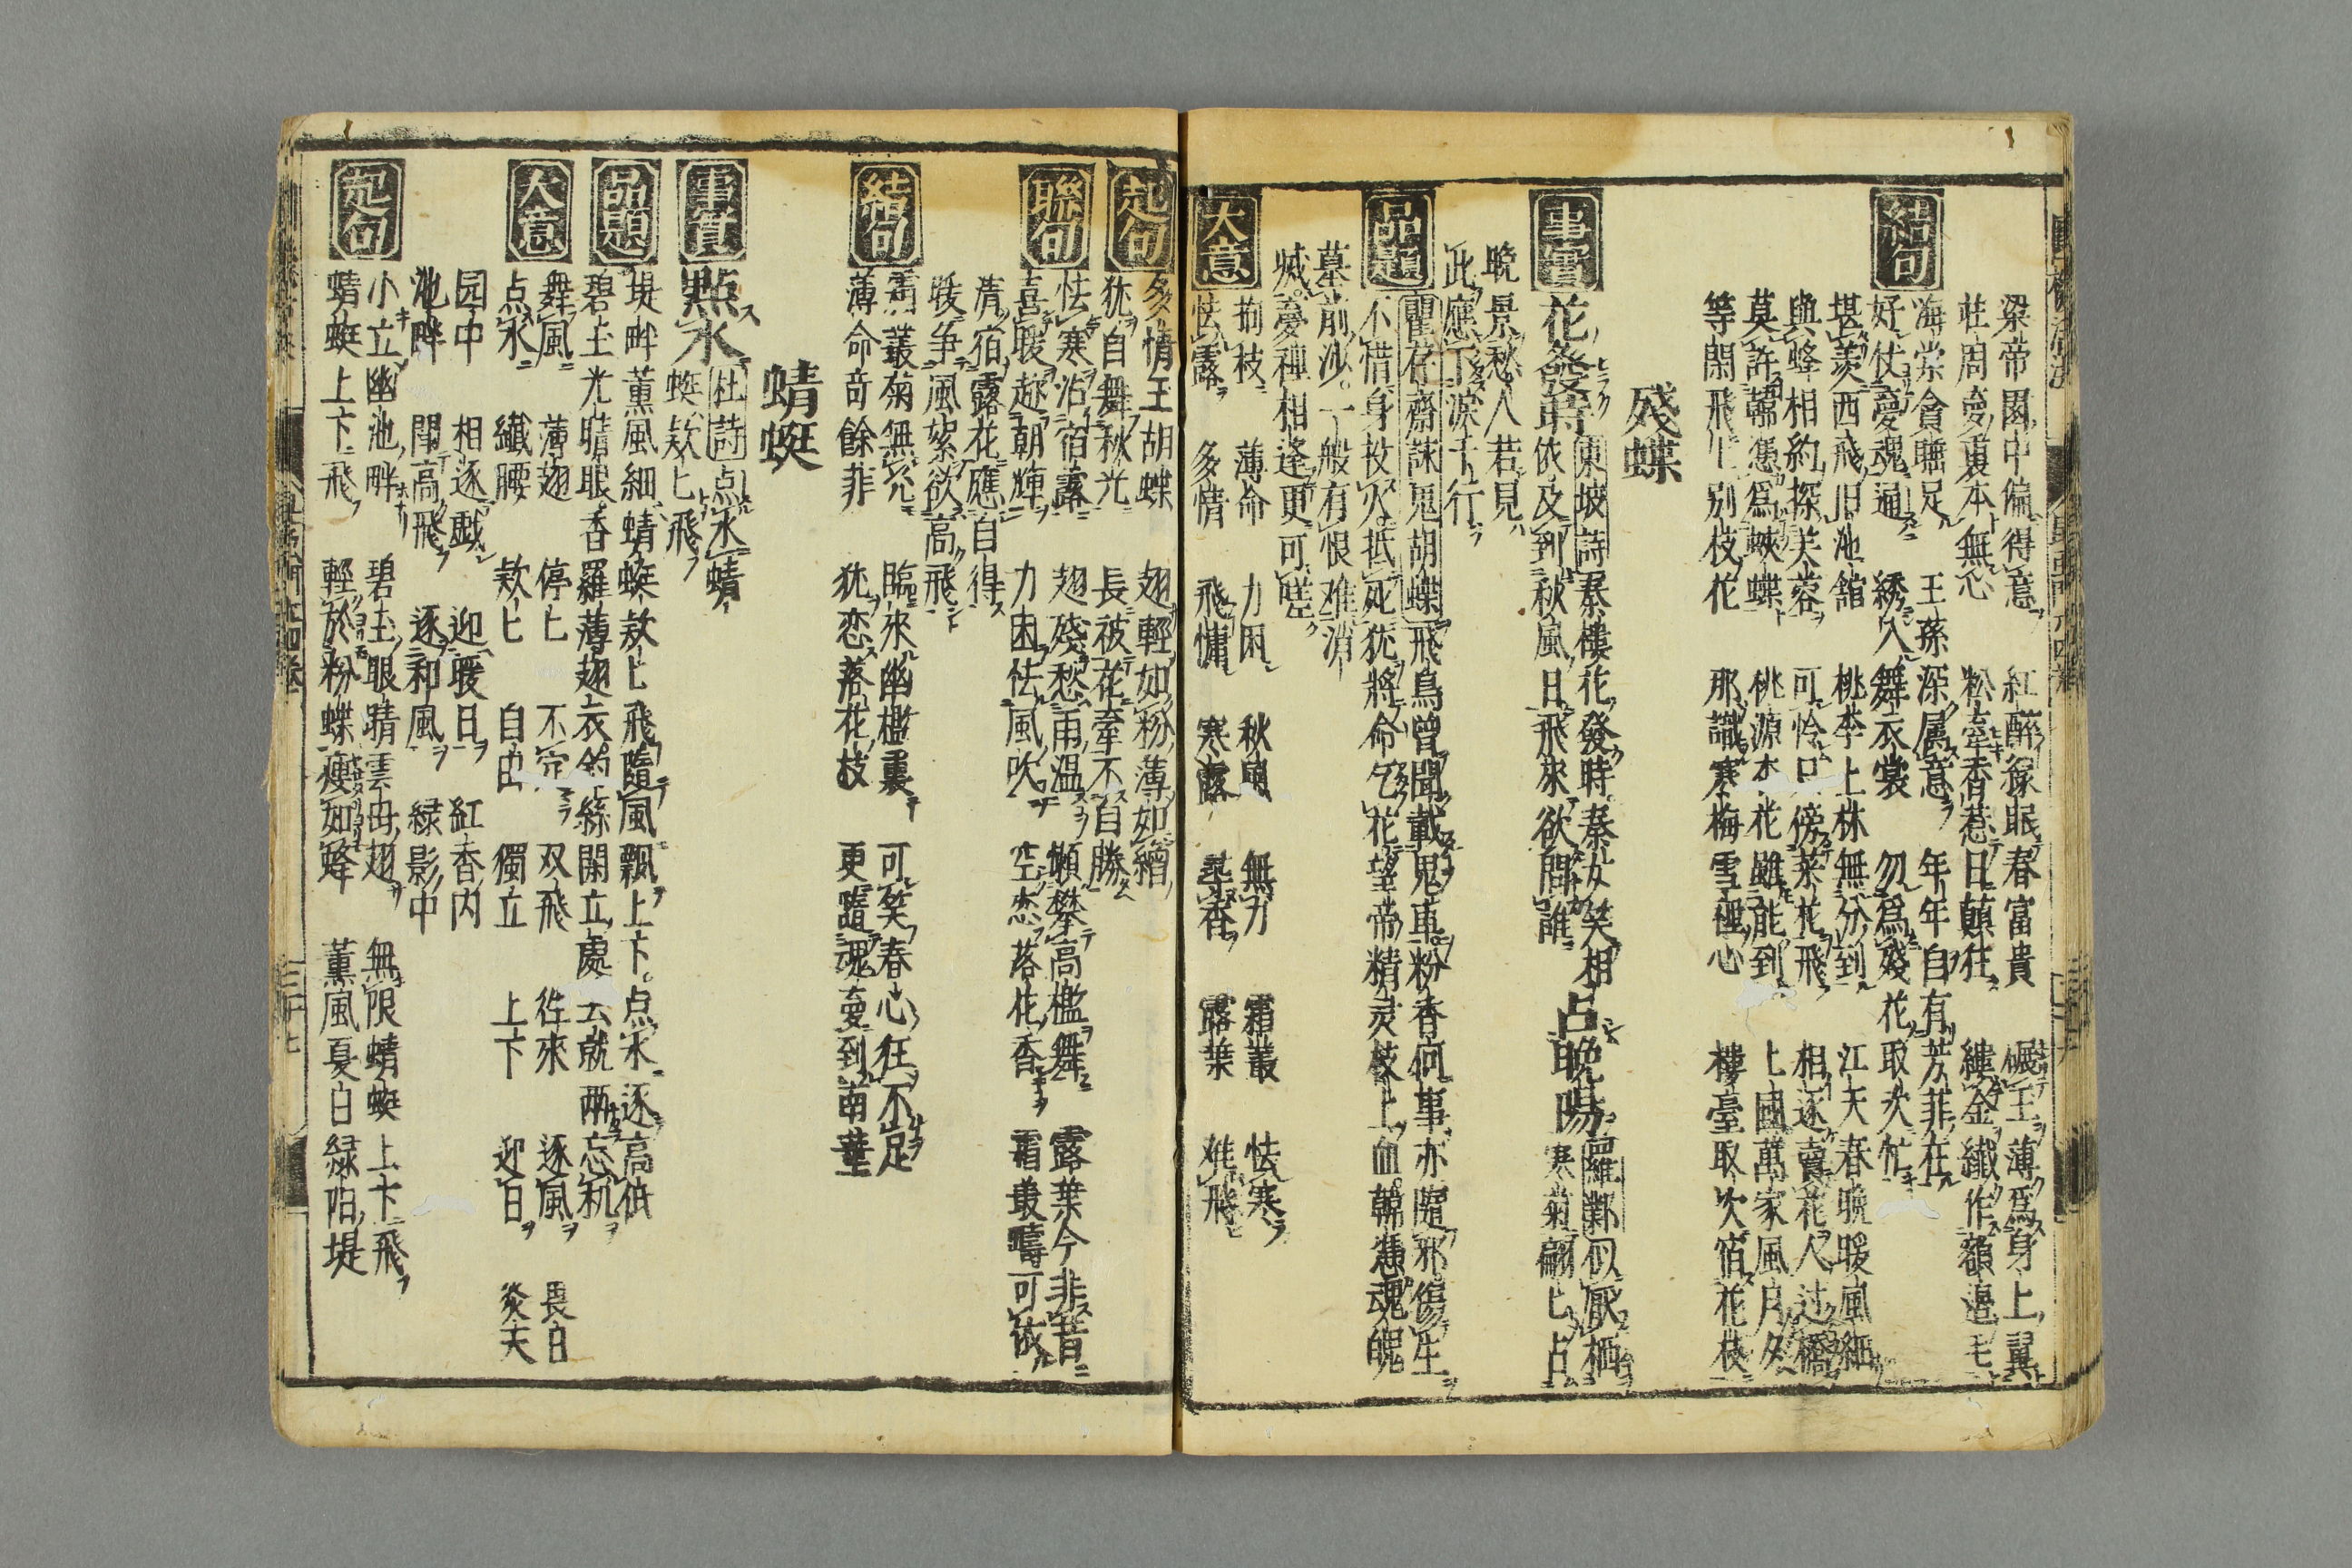 梁帝園中偏得意 紅醉稼眠春富貴 碾玉薄爲身上翼
莊周夢裏本無心 粉牽香惹日顛狂 縷金纖作額邊毛
海棠貪聽足 王孫深属意 年年自有芳菲在
結句
好仗夢魂通 綉入舞衣裳 勿爲殘花取次忙
堪羨西飛旧池館 桃李上林無分到 江天春晚暖風細
與蜂相約探芙蓉 可怜只傍菜花飛 相逐賣花人过橋
莫許韓憑爲蛺蝶 桃源花雖能到 上國萬家風月夕
等閑飛上別枝花 那識寒梅雪裡心 樓臺取次宿花枝
殘蝶
事實
花發時 東坡詩 秦樓花發時秦女笑相 占晩陽 羅鄴 似厭栖
依及到秋風日飛來欲問誰 寒菊翩匕占
晩景愁人若見
此應下淚千行
品題
瞿存齋詠鬼胡蝶 飛鳥曾聞載鬼車粉香何事亦隨邪傷生
不惜身投火抵死犹將命乞花望帝精灵枝上血韓憑魂魄
墓前沙一般有恨难消
滅夢裡相逢更可嗟
大意
抱枝 薄命 力困 秋 無力 霜叢 怯寒
怯露 多情 飛慵 寒露 香 露葉 难飛
起句
多情王胡蝶 翅輕如粉薄如繒
犹自舞秋光 長被花牽不自勝
聯句
怯寒沾宿露 翅殘愁雨温 懶攀高檻舞 露葉今非昔
喜暖趂朝輝 力困怯風吹 空恋落花香 霜叢疇可依
清宿露花應自得
暖争風絮欲高飛
結句
叢菊無 臨來幽檻裏 可笑春心狂不足
薄命奇餘菲 犹恋落花枝 更隨魂夢到南華
蜻蜓
事實
點水 杜詩 点水蜻
蜓款匕飛
品題
堤畔薰風細蜻蜓款匕飛隨風飄上下点水逐高低
碧玉光晴眼香羅薄翅衣釣絲閑立處去就两忘机
大意
舞風 薄翅 停匕 不定 双飛 徃來 逐風 畏日
点水 纖腰 款匕 自由 獨立 上下 迎日 炎天
园中 相逐戯 迎暖日 紅香内
池畔 閙高飛 逐和風 緑影中
起句
小立幽池畔 碧玉眼睛雲母翅 無限蜻蜓上下飛
蜻蜓上下飛 輕於粉蝶瘦如蜂 薰風夏日緑陌堤